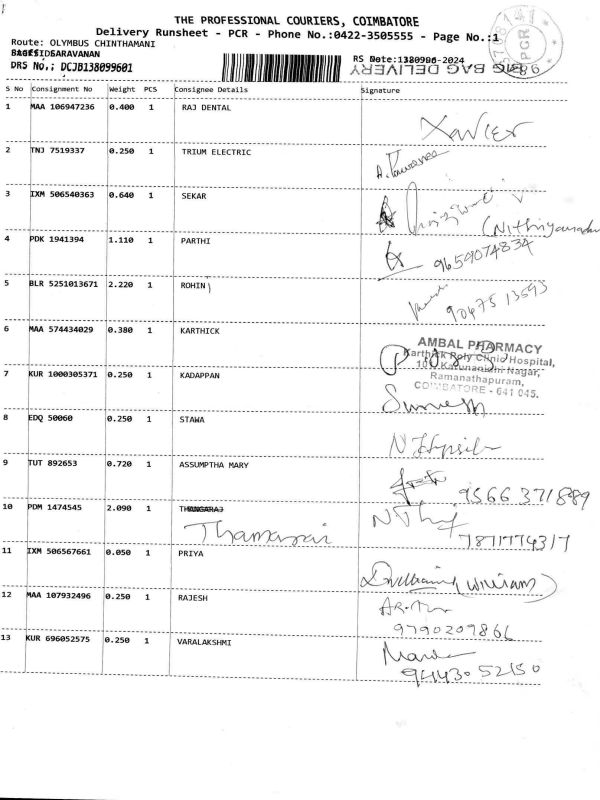 THE PROFESSIONAL COURIERS, COIMBATORE
Delivery Runsheet - PCR - Phone No.:0422-3505555 - Page No.:1
Route: OLYMBUS CHINTHAMANI
SARAVANAN
RS Date:
-2024
DRS No.; DCJB138099601
BAG DELIVERY
PCR
S No Consignment No Weight PCS Consignee Details Signature
1 MAA 106947236 0.400 1 RAJ DENTAL
Xavier
2 TNJ 7519337 0.250 1 TRIUM ELECTRIC
3 IXM 506540363 0.640 1 SEKAR
4 PDK 1941394 1.110 1 PARTHI
9659074834
5 BLR 5251013671 2.220 1 ROHIN
90475 13593
6 MAA 574434029 0.380 1 KARTHICK
AMBAL PHARMACY
Karthick Poly Clinic Hospital,
Karunanidhi Nagar,
Ramanathapuram,
COIMBATORE - 641 045.
7 KUR 1000305371 0.250 1 KADAPPAN
8 EDQ 50060 0.250 1 STAWA
9 TUT 892653 0.720 1 ASSUMPTHA MARY
9566 371889
10 PDM 1474545 2.090 1 THANGARAJ
Thamarai
7871774317
11 IXM 506567661 0.050 1 PRIYA
(William)
12 MAA 107932496 0.250 1 RAJESH
9790209866
13 KUR 696052575 0.250 1 VARALAKSHMI
94430 52150